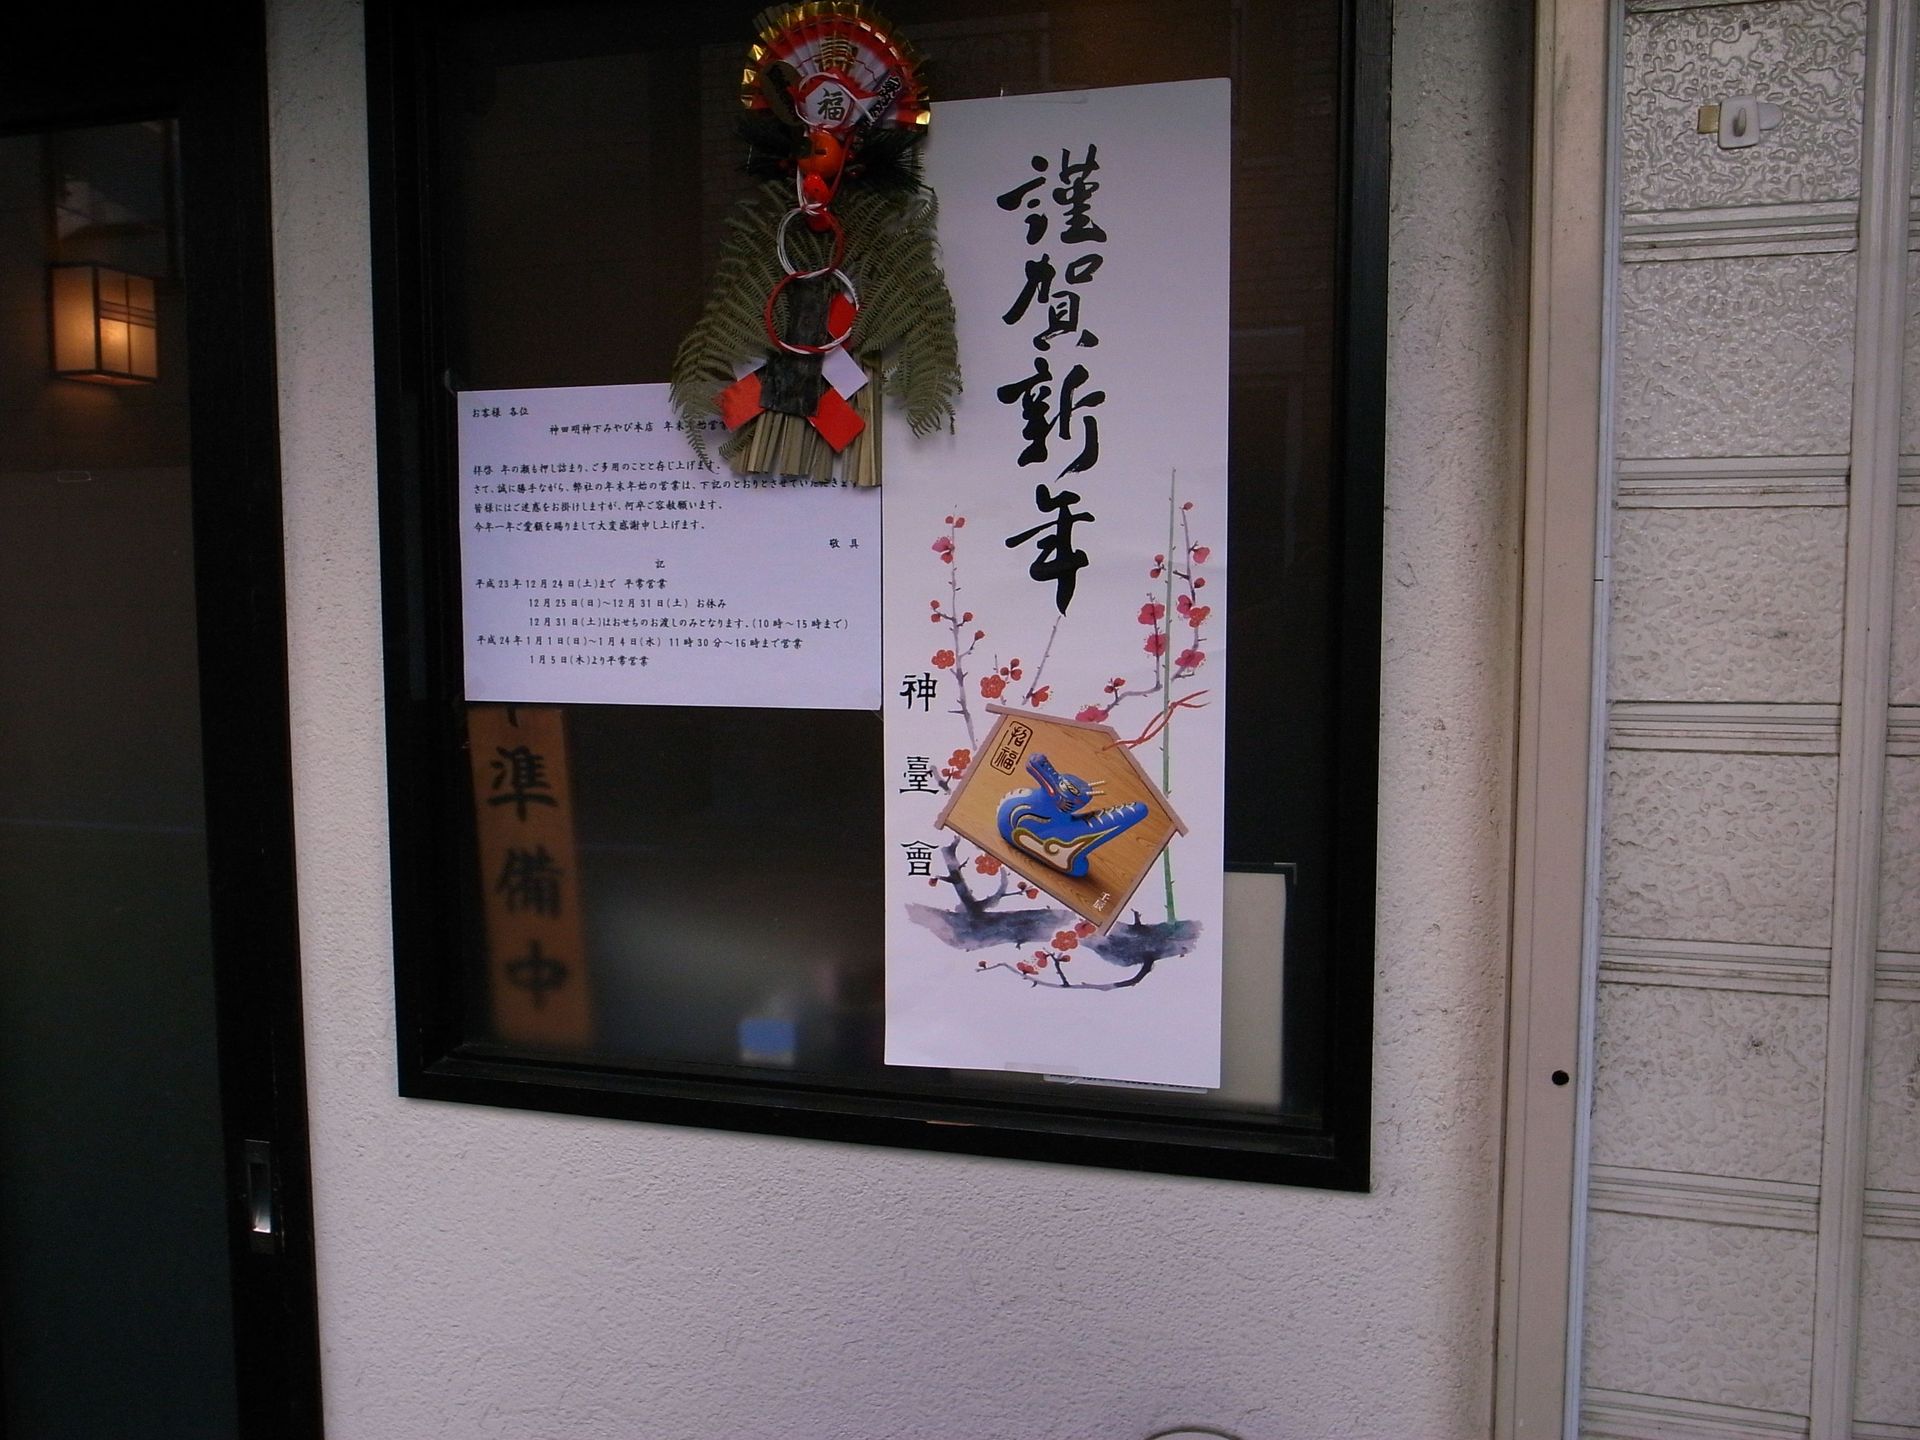 福
謹賀新年
お客様 各位
神田明神下みやび本店 年末
拝啓 年の瀬も押し詰まり、ご多用のことと存じ上げます。
さて、誠に勝手ながら、弊社の年末年始の営業は、下記のとおりとさせていただきます
皆様にはご迷惑をお掛けしますが、何卒ご容赦願います。
今年一年ご愛顧を賜りまして大変感謝申し上げます。
敬 具
記
平成23年12月24日(土)まで 平常営業
12月25日(日)～12月31日(土) お休み
12月31日(土)はおせちのお渡しのみとなります。(10時～15時まで)
平成24年1月1日(日)～1月4日(水) 11時30分～16時まで営業
1月5日(木)より平常営業
神臺會
招福
準備中